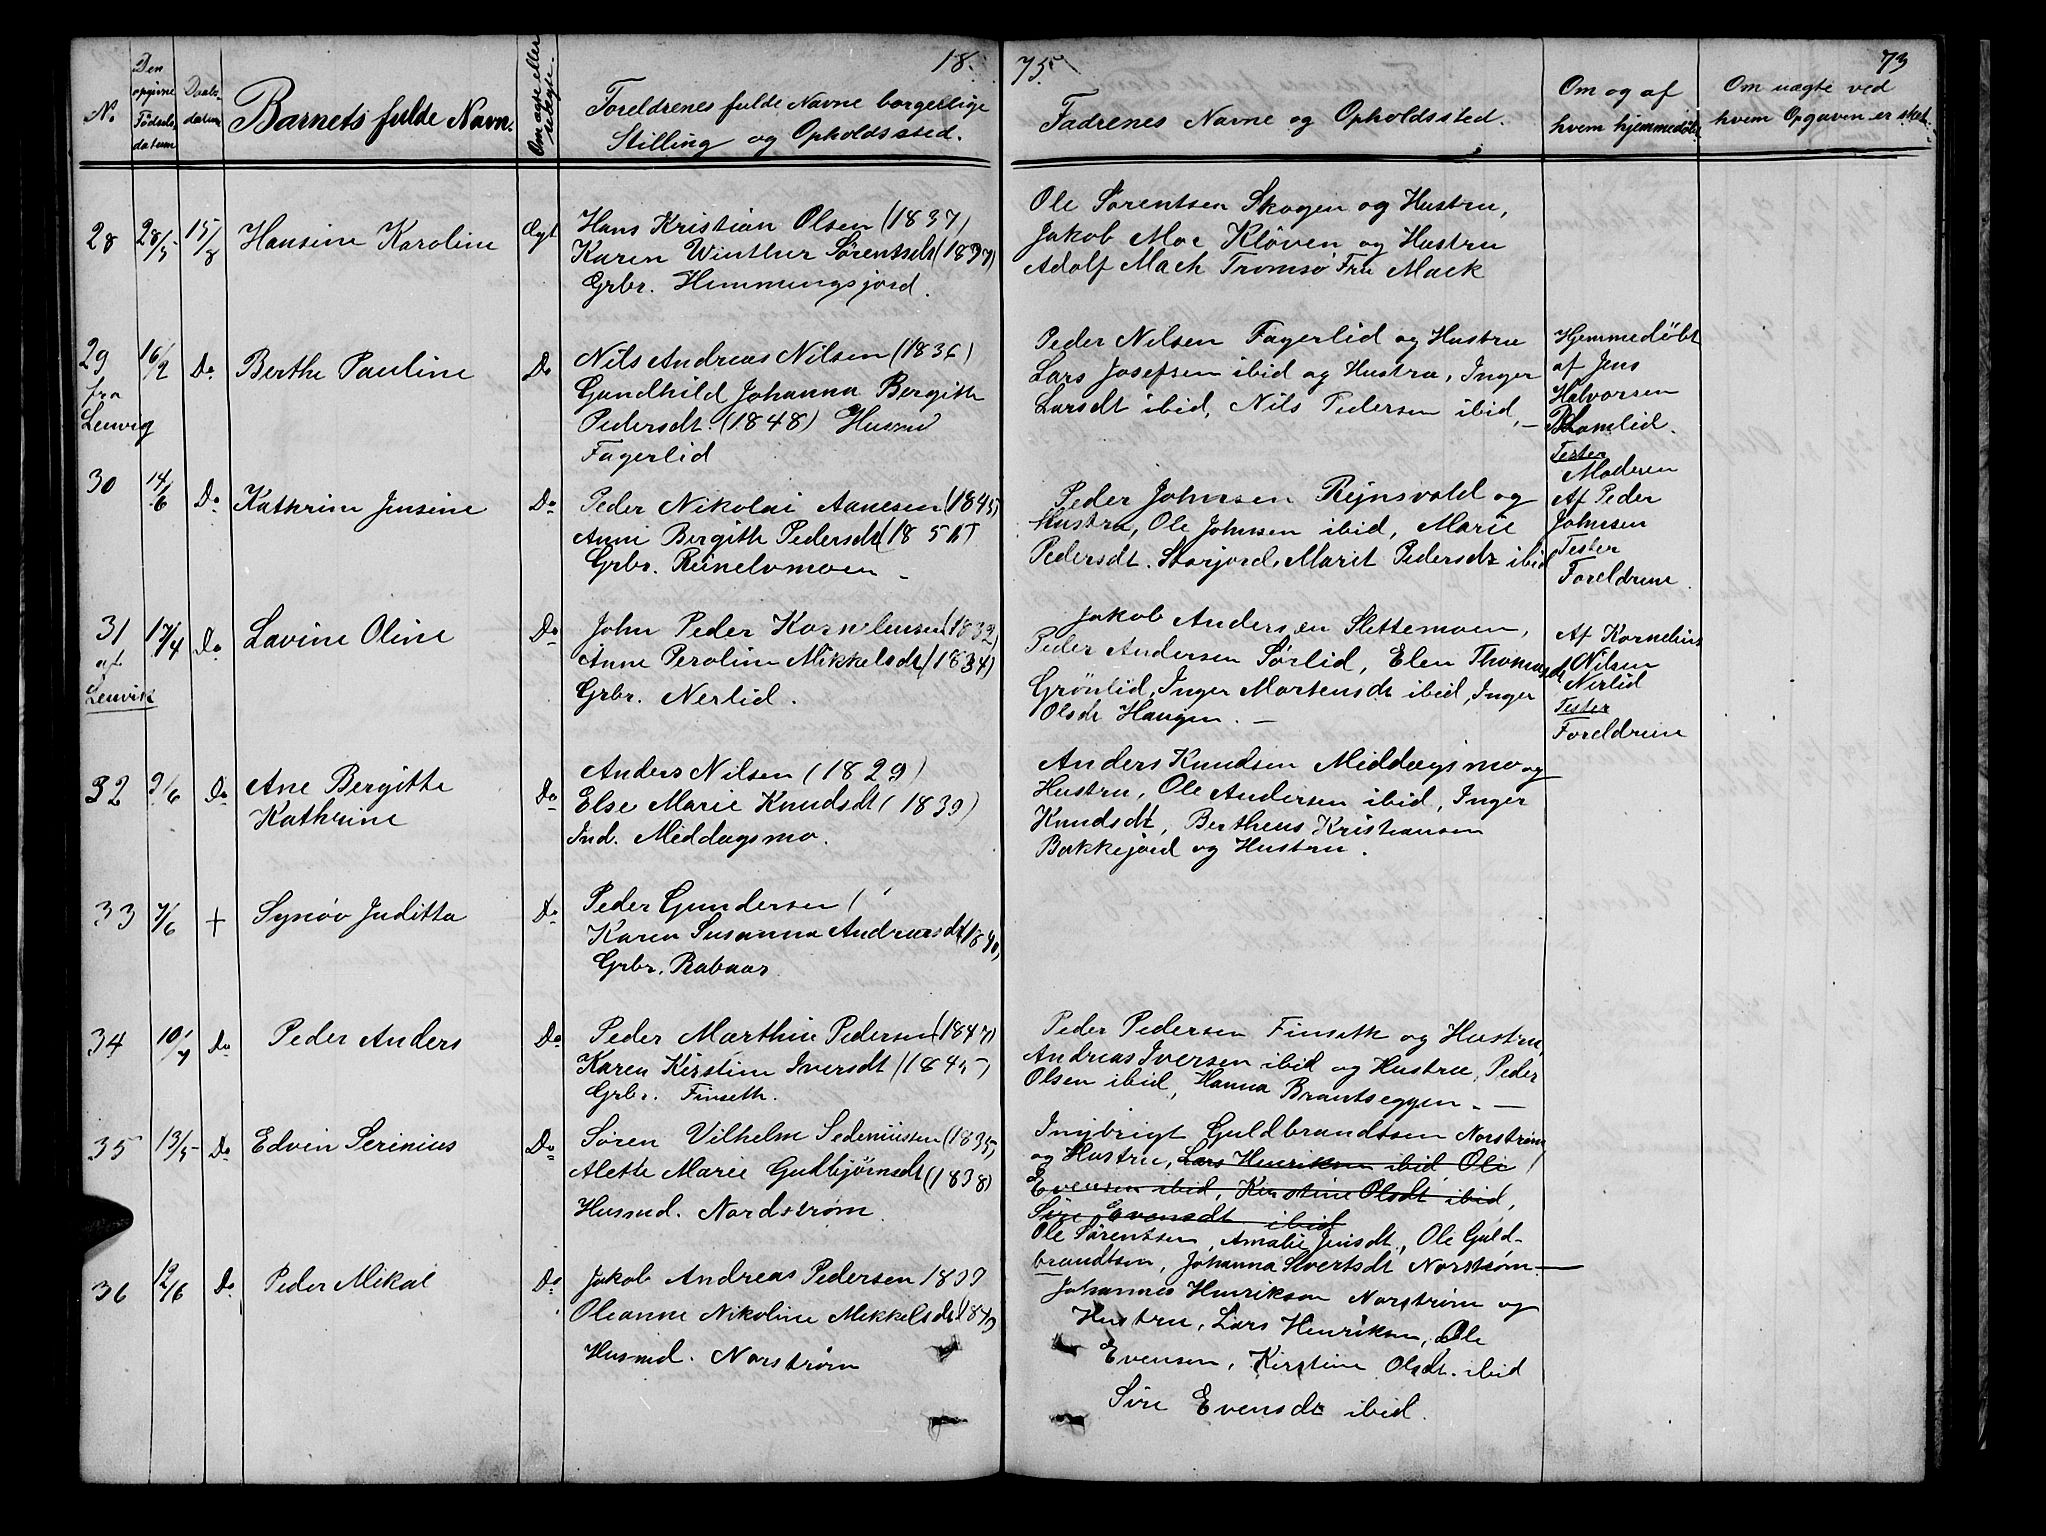 18. 75.
73
No
Den opgivne Fødsels datum
Daabsdatum
Barnets fulde Navn.
Om ægte eller uægte.
Foreldrenes fulde Navne borgerlige
Stilling og Opholdssted.
Fadrenes Navne og Opholdssted.
Om og af
hvem hjemmedøbt
Om uagte ved
hvem Opgaven er sket.
28 28/5 15/8 Hansine Karoline Ægt
Hans Kristian Olsen (1837)
Karen Winther Sørentsdt (1837)
Grbr. Hemmingsjord.
Ole Sørentsen Skogen og Hustru,
Jakob Moe Kløven og Hustru
Adolf Mack Tromsø Fru Mack
29 16/2 Do Berthe Pauline Do
fra
Lenvig
Nils Andreas Nilsen (1836)
Gundhild Johanna Bergith
Pedersdt. (1848) Husmd
Fagerlid
Peder Nilsen Fagerlid og Hustru
Lars Josefsen ibid og Hustru, Inger
Larsdt ibid, Nils Pedersen ibid, —
Hjemmedøbt
af Jens
Halvorsen
Blomlid.
Tester
Moderen
30 14/6 Do Kathrine Jensine Do
Peder Nikolai Aanesen (1845)
Anne Bergith Pedersdt (185
Grbr. Reinelvmoen
Peder Johnsen Rejnsvold og
Hustru, Ole Johnsen ibid, Marie
Pedersdt. Storjord, Marit Pedersdt ibid
Af Peder
Johnsen
Tester
Foreldrene.
31 17/4 Do Lavine Oline Do
af
Lenvik
John Peder Kornelius en (1832)
Anne Peroline Mikkelsdt (1834)
Grbr. Nerlid.
Jakob Andersen Slettemoen,
Peder Andersen Sørlid, Elen Thomasdt
Grønlid, Inger Mortensdt ibid, Inger
Olsdt Haugen. —
Af Kornelius
Nilsen
Nerlid
Tester
Foreldrene
32 9/6 Do Ane Bergitte Do
Kathrine
Anders Nilsen (1829)
Else Marie Knudsdt (1839)
Ind. Middagsmo.
Anders Knudsen Middagsmo og
Hustru, Ole Andersen ibid, Inger
Knudsdt, Bertheus Kristiansen
Bakkejord og Hustru.
33 7/6 + Synøv Juditta Do
Peder Gundersen (
Karen Susanna Andreasdt (1840)
Grbr. Rabaas.
34 10/7 Do Peder Anders Do
Peder Marthin Pedersen (1847)
Karen Kirstine Iversdt (1845)
Grbr. Finseth.
Peder Pedersen Finseth og Hustru,
Andreas Iversen ibid og Hustru, Peder
Olsen ibid, Hanna Brantseggen. —
35 13/5 Do Edvin Serinius Do
Søren Vilhelm Sedeniussen (1835)
Alette Marie Gudbjørnsdt (1838)
Husmd. Nordstrøm
Ingbrigt Guldbrandssen Norstrøm
og Hustru, Lars Henriksen ibid Ole
Evensen ibid, Kirstine Olsdt ibid,
Sire Evensdt ibid
Ole Sørentsen, Amalie Jensdt, Ole Guld-
brandtsen, Johanna Sivertsdt Norstrøm. —
36 12/6 Do Peder Mikal Do
Jakob Andreas Pedersen 1839
Oleanne Nikoline Mikkelsdt (1849
Husmd. Norstrøm
Johannes Henriksen Norstrøm og
Hustru, Lars Henriksen, Ole
Evensen, Kirstine Olsdt. ibid
Sire Evensdt ibid.